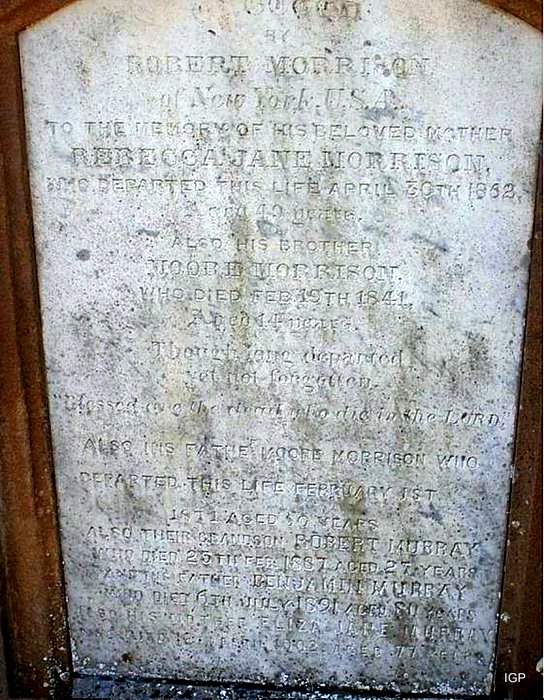 BY
ROBERT MORRISON
of New York. U.S.A.
TO THE MEMORY OF HIS BELOVED MOTHER
REBECCA JANE MORRISON,
WHO DEPARTED THIS LIFE APRIL 30TH 1862,
Aged 49 years.
ALSO HIS BROTHER
MOORE MORRISON.
WHO DIED FEB 19TH 1841.
Aged 14 years.
Though long departed
yet not forgotten.
"Blessed are the dead who die in the LORD."
ALSO HIS FATHER MOORE MORRISON WHO
DEPARTED THIS LIFE FEBRUARY 1ST
1871 AGED YEARS
ALSO THEIR GRANDSON ROBERT MURRAY
WHO DIED 25TH FEB. 1887 AGED 27 YEARS
AND THE FATHER BENJAMIN MURRAY
WHO DIED 6TH JULY 1891 AGED 80 YEARS
ALSO HIS ELIZA JANE MURRAY
WHO DIED AGED 77 YEARS
IGP